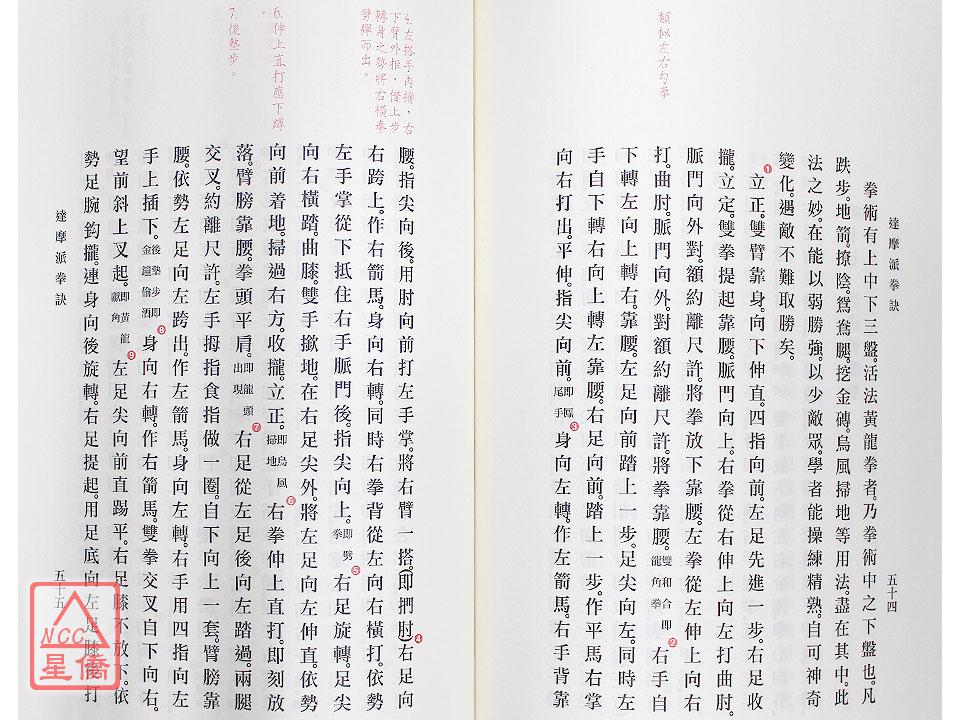 類似左右勾拳
達摩派拳訣
五十四
拳術有上中下三盤。活法黃龍拳者。乃拳術中之下盤也。凡
跌步。地箭。撩陰。鴛鴦腿。挖金磚。烏風掃地等用法。盡在其中。此
法之妙。在能以弱勝強。以少敵眾。學者能操練精熟。自可神奇
變化。遇敵不難取勝矣。
❶立正。雙臂靠身。向下伸直。四指向前。左足先進一步。右足收
攏。立定。雙拳提起靠腰。脈門向上。右拳從右伸上向左打曲肘。
脈門向外對。額約離尺許。將拳放下靠腰。左拳從左伸上向右
打。曲肘。脈門向外。對額約離尺許。將拳靠腰。即雙和合龍角拳❷右手自
下轉左向上轉右。靠腰。左足向前踏上一步。足尖向左。同時左
手自下轉右向上轉左靠腰。右足向前。踏上一步。作平馬右掌
向右打出。平伸。指尖向前。即鳳尾手❸身向左轉。作左箭馬。右手背靠
4.左搭手內擔，右
下臂外拒，借上步
轉身之勢將右橫拳
劈彈而出。
6.伸上直打應下蹲
。
7.後墊步。
腰。指尖向後。用肘向前打左手掌。將右臂一搭。即捫肘❹右足向
右跨上。作右箭馬。身向右轉。同時右拳背從左向右橫打。依勢
左手掌從下抵住右手脈門後。指尖向上。即劈拳❺右足旋轉。足尖
向右橫踏。曲膝。雙手撳地。在右足尖外。將左足向左伸直。依勢
向前着地。掃過右方。收攏。立正。即烏風掃地❻右拳伸上直打。即刻放
落。臂膀靠腰。拳頭平肩。即龍頭出現❼右足從左足後向左踏過。兩腿
交叉。約離尺許。左手拇指食指做一圈。自下向上一套。臂膀靠
腰。依勢左足向左跨出。作左箭馬。身向左轉。右手用四指向左
手上插下。後墊步即金鐘偷酒❽身向右轉。作右箭馬。雙拳交叉自下向右。
望前斜上叉起。即黃龍獻角❾左足尖向前直踢平。右足膝不放下。依
勢足腕鈎攏。連身向後旋轉。右足提起。用足底向左足膝後打
達摩派拳訣
五十五
NCC
星僑